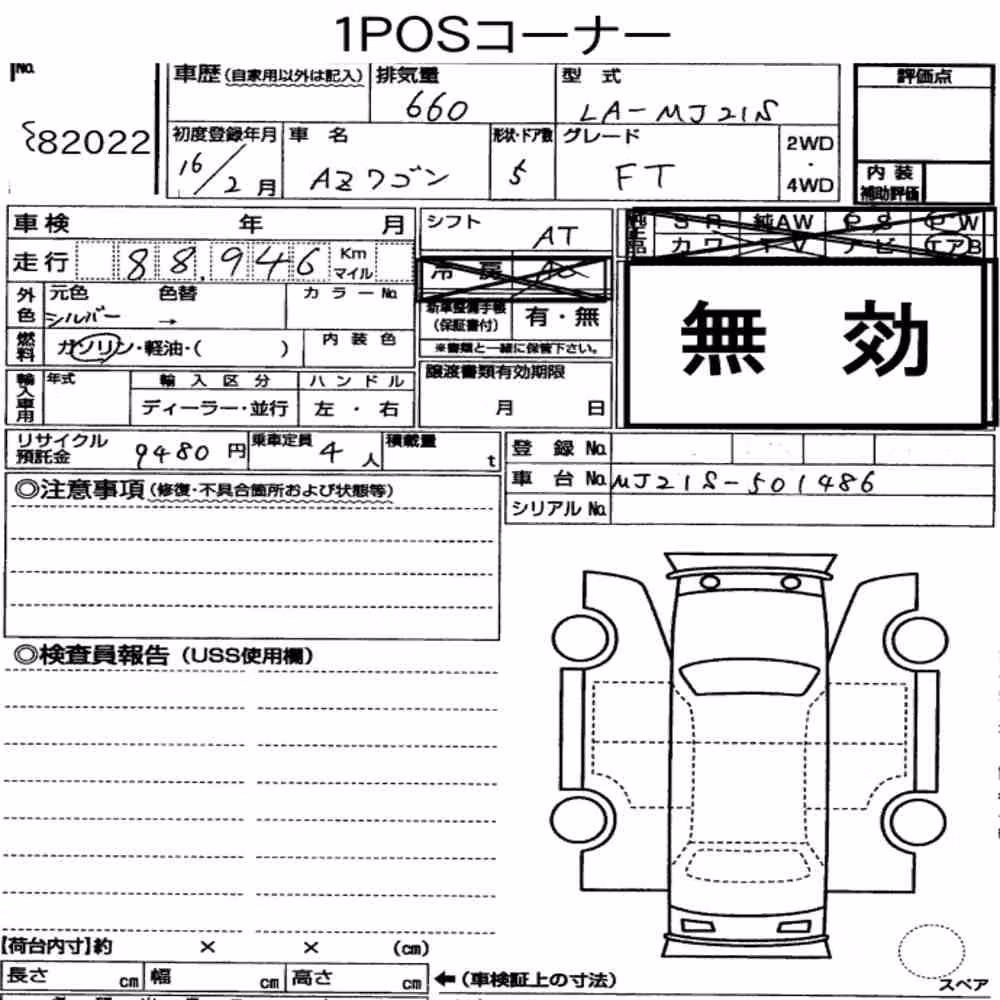 1POSコーナー
No.
82022
車歴(自家用以外は記入) 排気量 型式 評価点
660 LA-MJ21S
初度登録年月 車名 形状・ドア数 グレード 2WD・4WD
16/2月 AZワゴン 5 FT
内装補助評価
車検 年 月 シフト AT
SR 純AW PS PW
カワ TV ナビ エアB
走行 88,946 Km マイル
冷房 AC
外色 元色 色替 カラーNo.
シルバー →
新車整備手帳(保証書付) 有・無
※書類と一緒に保管下さい。
無効
燃料 ガソリン・軽油・( ) 内装色
輸入車用 年式 輸入区分 ハンドル
ディーラー・並行 左・右
譲渡書類有効期限
月 日
リサイクル預託金 9480円 乗車定員 4人 積載量 t
登録No.
車台No. MJ21S-501486
シリアルNo.
◎注意事項(修復・不具合箇所および状態等)
◎検査員報告(USS使用欄)
【荷台内寸】約 × × (cm)
長さ cm 幅 cm 高さ cm ←(車検証上の寸法)
スペア